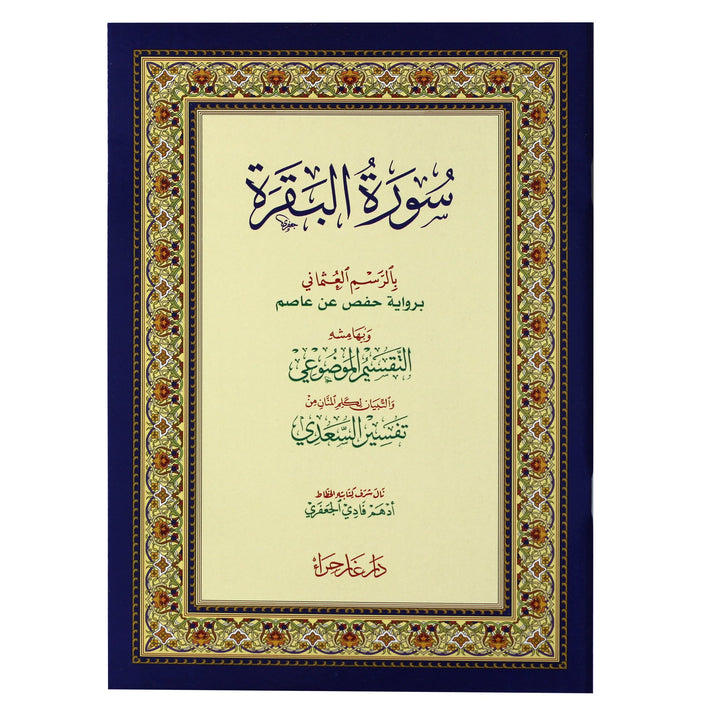 سُورَةُ البَقَرَة
جعفري
بِالرَّسْمِ العُثْمَاني
برواية حفص عن عاصم
وَبهَامِشِهِ
التَّقسِيْمُ المَوضُوعيْ
وَالتِّبيَان لِكَلِمِ المَنَّانِ مِن
تَفْسِيْر السَّعْدِيْ
نَالَ شَرَفَ كِتَابَتِهِ الخَطَّاط
أدْهَم فَادِي الجَعْفَرِي
دَار غَار حِرَاء